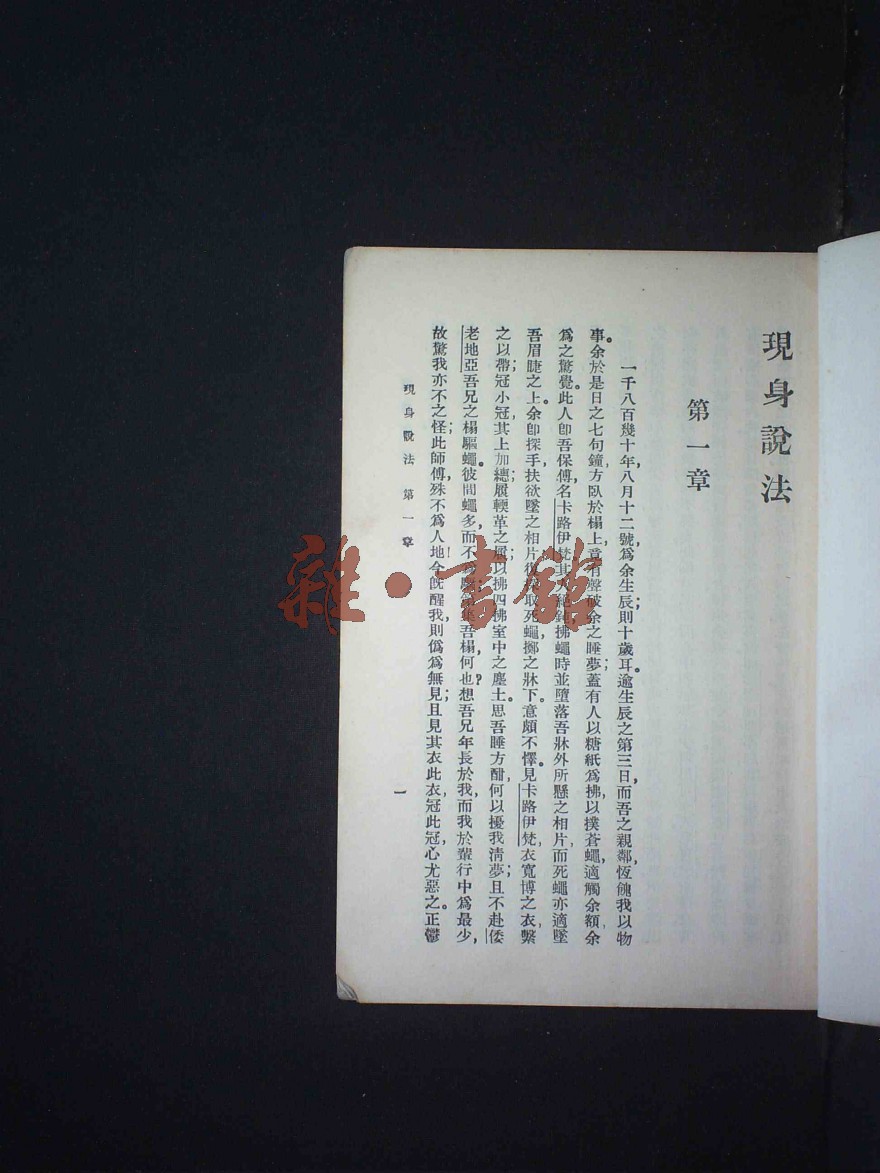 現身說法
第一章
一千八百幾十年八月十二號，爲余生辰，則十歲耳。逾生辰之第三日，而吾之親鄰，恆餽我以物
事。余於是日之七句鐘，方臥於榻上，竟有聲破余之睡夢；蓋有人以糖紙爲拂，以撲蒼蠅，適觸余額，余
爲之驚覺。此人卽吾保傅，名卡路伊梵，其人絕鈍，拂蠅時並墮落吾牀外所懸之相片，而死蠅亦適墜
吾眉睫之上。余卽探手扶欲墜之相片，復取死蠅擲之牀下。意頗不懌。見卡路伊梵，衣寬博之衣，繫
之以帶；冠小冠，其上加總；履輭革之履，以拂四拂室中之塵土。思吾睡方酣，何以擾我淸夢；且不赴倭
老地亞吾兄之榻驅蠅。彼間蠅多而不爲驅，集吾榻，何也？想吾兄年長於我，而我於輩行中爲最少，
故驚我亦不之怪；此師傅，殊不爲人地！今旣醒我，則僞爲無見；且見其衣此衣，冠此冠，心尤惡之。正鬱
現身說法 第一章
一
雜·書館